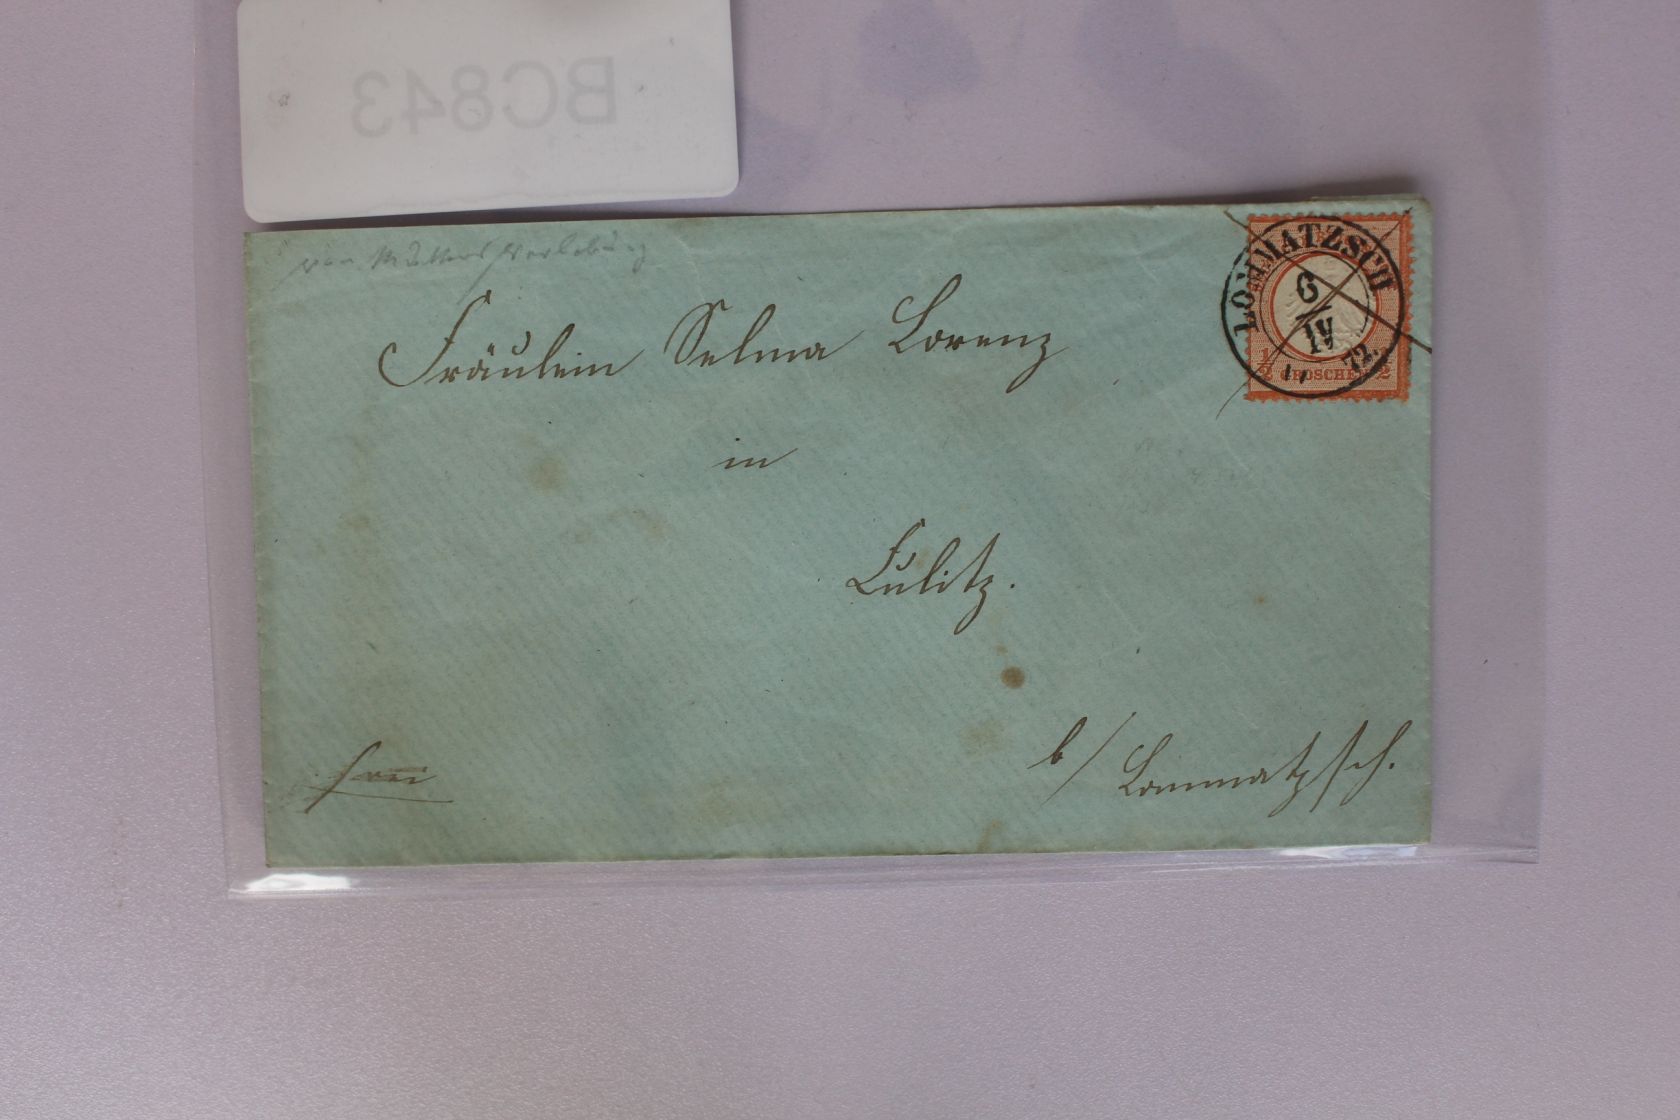 BC843
von Mutters Verlobung
LOMMATZSCH
6
IV
72.
½ GROSCHEN ½
Fräulein Selma Lorenz
in
Lulitz.
b/ Lommatzsch.
frei